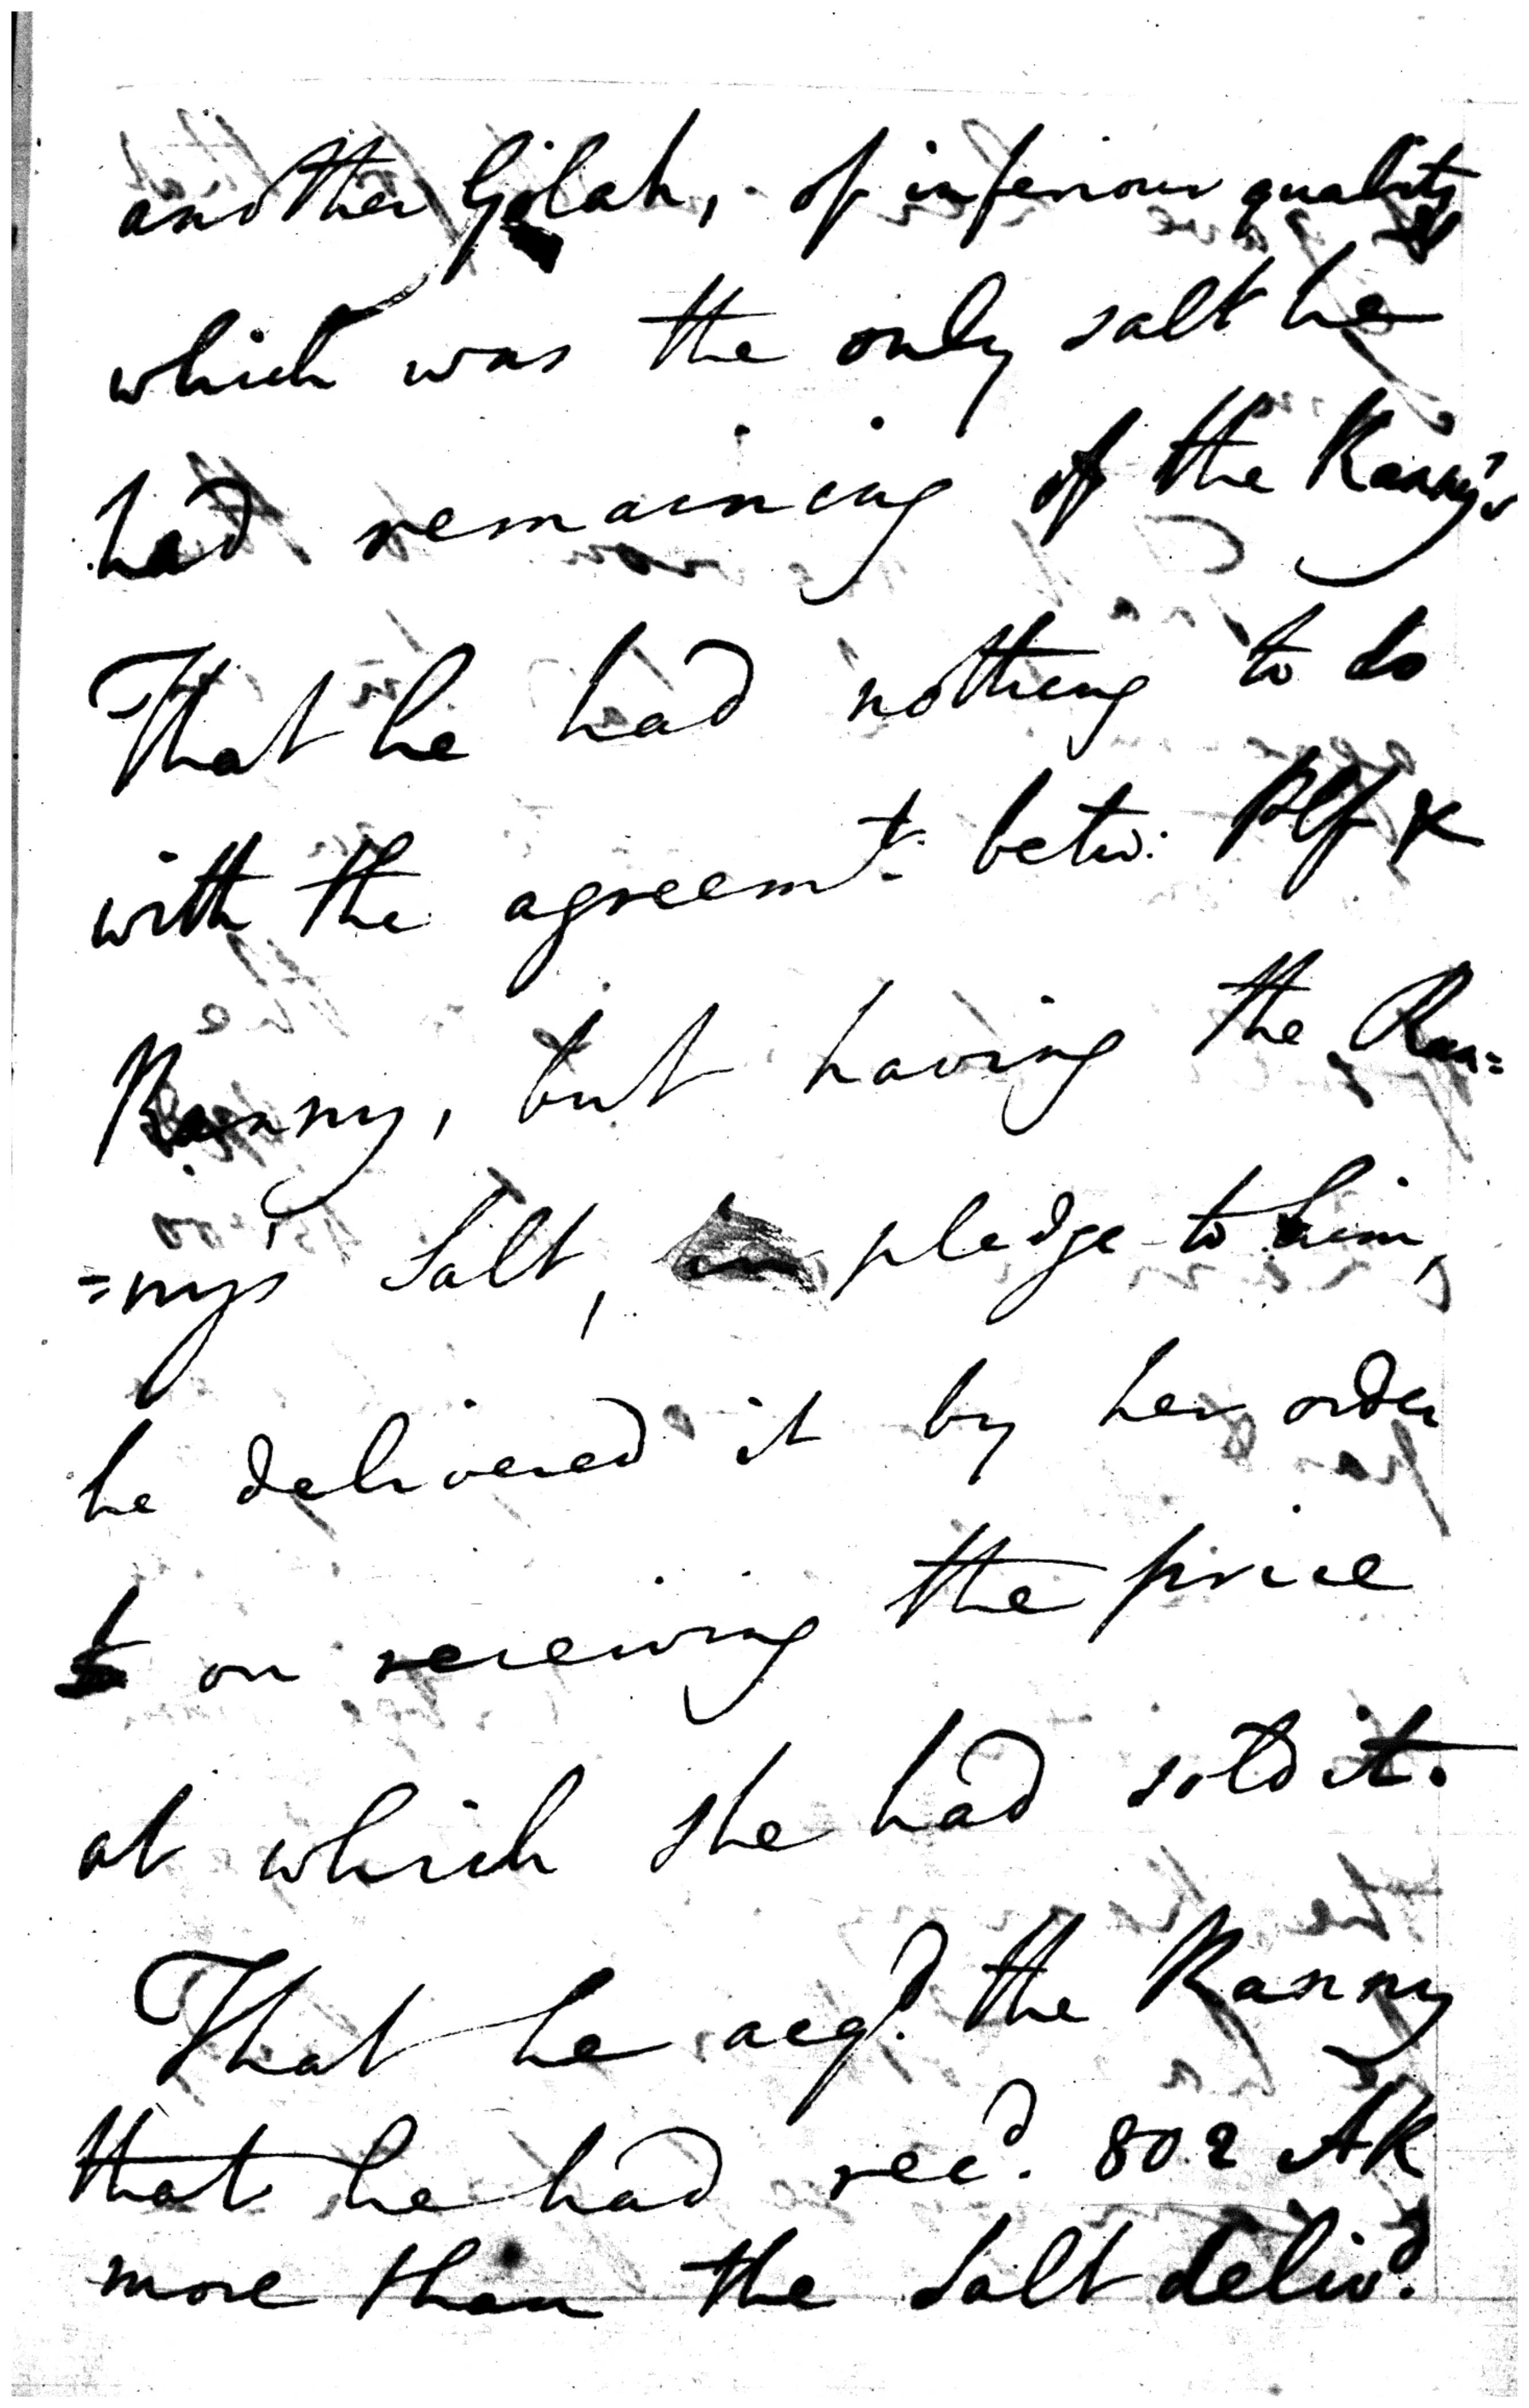 another Golah, of inferiour quality
which was the only salt he
had remaining of the Ranny's
That he had nothing to do
with the agreemt. betw: Plf &
Ranny, but having the Ran=
=ny's Salt, in pledge to him,
he delivered it by her order
on receiving the price
at which she had sold it.
That he acqd. the Ranny
that he had recd. 802 AR
more than the Salt delivd.